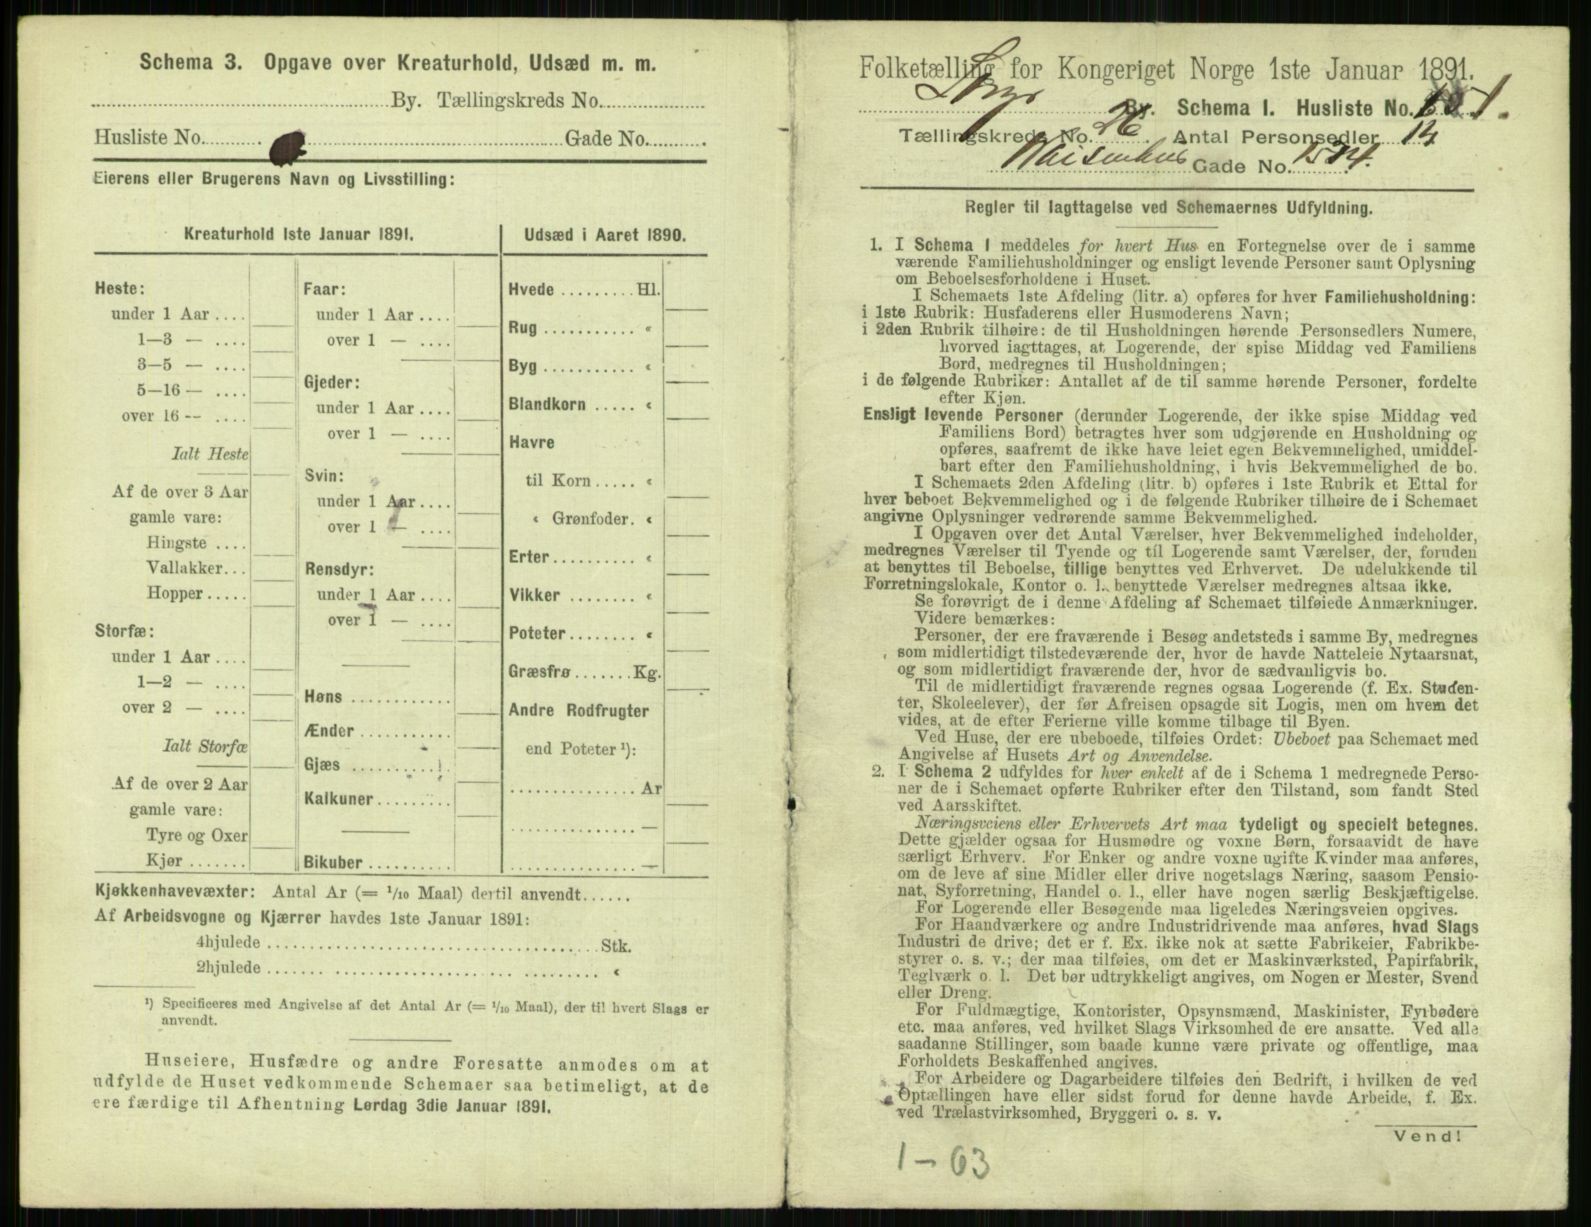 Schema 3. Opgave over Kreaturhold, Udsæd m. m.
By. Tællingskreds No.
Husliste No. Gade No.
Eierens eller Brugerens Navn og Livsstilling:
Kreaturhold 1ste Januar 1891.
Heste:
under 1 Aar
1—3 —
3—5 —
5—16 —
over 16 —
Ialt Heste
Af de over 3 Aar
gamle vare:
Hingste
Vallakker
Hopper
Storfæ:
under 1 Aar
1—2 —
over 2 —
Ialt Storfæ
Af de over 2 Aar
gamle vare:
Tyre og Oxer
Kjør
Faar:
under 1 Aar
over 1 —
Gjeder:
under 1 Aar
over 1 —
Svin:
under 1 Aar
over 1 —
Rensdyr:
under 1 Aar
over 1 —
Høns
Ænder
Gjæs
Kalkuner
Bikuber
Udsæd i Aaret 1890.
Hvede Hl.
Rug «
Byg «
Blandkorn «
Havre
til Korn «
« Grønfoder. «
Erter «
Vikker «
Poteter «
Græsfrø Kg.
Andre Rodfrugter
end Poteter ¹):
Ar
—
—
Kjøkkenhavevæxter: Antal Ar (= ¹/₁₀ Maal) dertil anvendt
Af Arbeidsvogne og Kjærrer havdes 1ste Januar 1891:
4hjulede Stk.
2hjulede «
¹) Specificeres med Angivelse af det Antal Ar (= ¹/₁₀ Maal), der til hvert Slags er
anvendt.
Huseiere, Husfædre og andre Foresatte anmodes om at
udfylde de Huset vedkommende Schemaer saa betimeligt, at de
ere færdige til Afhentning Lørdag 3die Januar 1891.
Folketælling for Kongeriget Norge 1ste Januar 1891.
By. Schema 1. Husliste No. 1.
Tællingskreds No. 26 Antal Personsedler
Waisenhus Gade No.
Regler til Iagttagelse ved Schemaernes Udfyldning.
1. I Schema 1 meddeles for hvert Hus en Fortegnelse over de i samme
værende Familiehusholdninger og ensligt levende Personer samt Oplysning
om Beboelsesforholdene i Huset.
I Schemaets 1ste Afdeling (litr. a) opføres for hver Familiehusholdning:
i 1ste Rubrik: Husfaderens eller Husmoderens Navn;
i 2den Rubrik tilhøire: de til Husholdningen hørende Personsedlers Numere,
hvorved iagttages, at Logerende, der spise Middag ved Familiens
Bord, medregnes til Husholdningen;
i de følgende Rubriker: Antallet af de til samme hørende Personer, fordelte
efter Kjøn.
Ensligt levende Personer (derunder Logerende, der ikke spise Middag ved
Familiens Bord) betragtes hver som udgjørende en Husholdning og
opføres, saafremt de ikke have leiet egen Bekvemmelighed, umiddel-
bart efter den Familiehusholdning, i hvis Bekvemmelighed de bo.
I Schemaets 2den Afdeling (litr. b) opføres i 1ste Rubrik et Ettal for
hver beboet Bekvemmelighed og i de følgende Rubriker tilhøire de i Schemaet
angivne Oplysninger vedrørende samme Bekvemmelighed.
I Opgaven over det Antal Værelser, hver Bekvemmelighed indeholder,
medregnes Værelser til Tyende og til Logerende samt Værelser, der, foruden
at benyttes til Beboelse, tillige benyttes ved Erhvervet. De udelukkende til
Forretningslokale, Kontor o. l. benyttede Værelser medregnes altsaa ikke.
Se forøvrigt de i denne Afdeling af Schemaet tilføiede Anmærkninger.
Videre bemærkes:
Personer, der ere fraværende i Besøg andetsteds i samme By, medregnes
som midlertidigt tilstedeværende der, hvor de havde Natteleie Nytaarsnat,
og som midlertidigt fraværende der, hvor de sædvanligvis bo.
Til de midlertidigt fraværende regnes ogsaa Logerende (f. Ex. Studen-
ter, Skoleelever), der før Afreisen opsagde sit Logis, men om hvem det
vides, at de efter Ferierne ville komme tilbage til Byen.
Ved Huse, der ere ubeboede, tilføies Ordet: Ubeboet paa Schemaet med
Angivelse af Husets Art og Anvendelse.
2. I Schema 2 udfyldes for hver enkelt af de i Schema 1 medregnede Perso-
ner de i Schemaet opførte Rubriker efter den Tilstand, som fandt Sted
ved Aarsskiftet.
Næringsveiens eller Erhvervets Art maa tydeligt og specielt betegnes.
Dette gjælder ogsaa for Husmødre og voxne Børn, forsaavidt de have
særligt Erhverv. For Enker og andre voxne ugifte Kvinder maa anføres,
om de leve af sine Midler eller drive nogetslags Næring, saasom Pensio-
nat, Syforretning, Handel o. l., eller have nogen særlig Beskjæftigelse.
For Logerende eller Besøgende maa ligeledes Næringsveien opgives.
For Haandværkere og andre Industridrivende maa anføres, hvad Slags
Industri de drive; det er f. Ex. ikke nok at sætte Fabrikeier, Fabrikbe-
styrer o. s. v.; der maa tilføies, om det er Maskinværksted, Papirfabrik,
Teglværk o. l. Det bør udtrykkeligt angives, om Nogen er Mester, Svend
eller Dreng.
For Fuldmægtige, Kontorister, Opsynsmænd, Maskinister, Fyrbødere
etc. maa anføres, ved hvilket Slags Virksomhed de ere ansatte. Ved alle
saadanne Stillinger, som baade kunne være private og offentlige, maa
Forholdets Beskaffenhed angives.
For Arbeidere og Dagarbeidere tilføies den Bedrift, i hvilken de ved
Optællingen have eller sidst forud for denne havde Arbeide, f. Ex.
ved Trælastvirksomhed, Bryggeri o. s. v.
Vend!
1-63